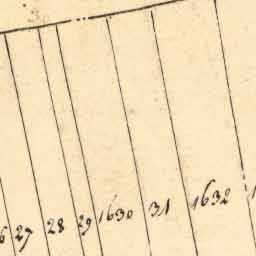 27 28 29 1630 31 1632